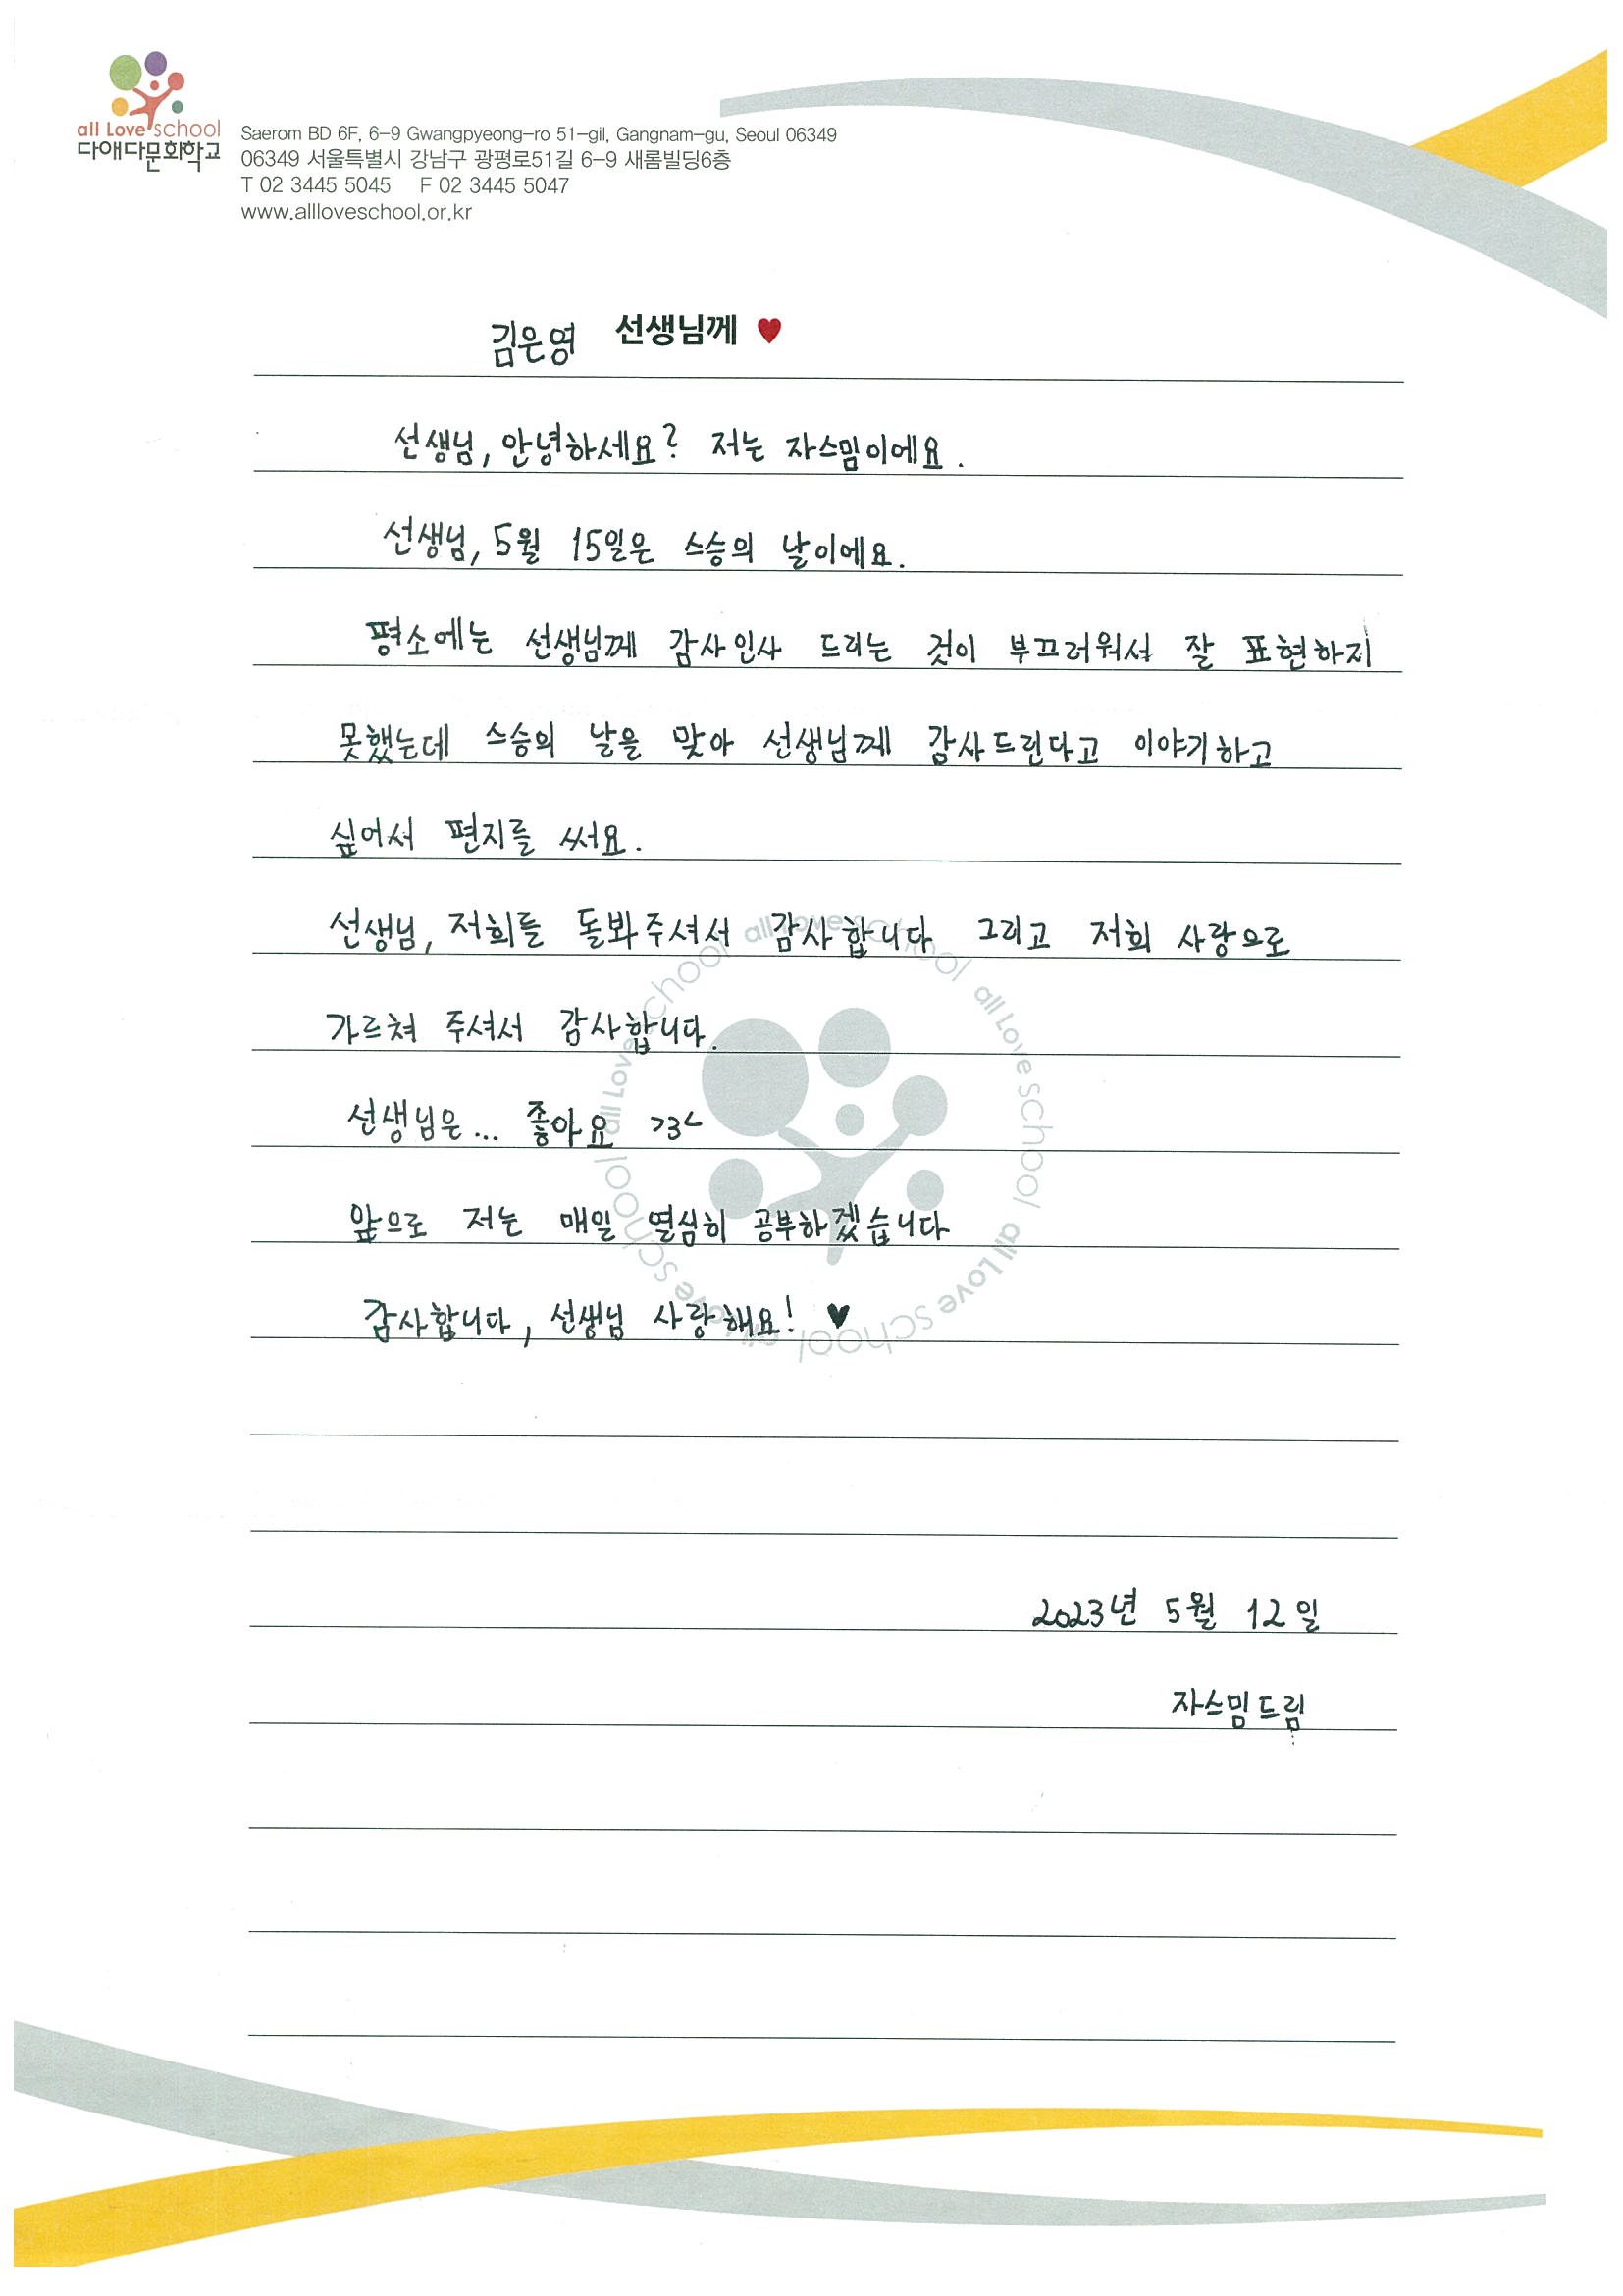 all Love school
다애다문화학교
Saerom BD 6F, 6-9 Gwangpyeong-ro 51-gil, Gangnam-gu, Seoul 06349
06349 서울특별시 강남구 광평로51길 6-9 새롬빌딩6층
T 02 3445 5045 F 02 3445 5047
www.allloveschool.or.kr
김은영 선생님께 ♥
선생님, 안녕하세요? 저는 자스밈이에요.
선생님, 5월 15일은 스승의 날이에요.
평소에는 선생님께 감사인사 드리는 것이 부끄러워서 잘 표현하지
못했는데 스승의 날을 맞아 선생님께 감사드린다고 이야기하고
싶어서 편지를 써요.
선생님, 저희를 돌봐주셔서 감사합니다 그리고 저희 사랑으로
가르쳐 주셔서 감사합니다.
선생님은... 좋아요 >3<
앞으로 저는 매일 열심히 공부하겠습니다
감사합니다, 선생님 사랑해요! ♥
all Love school all Love school all Love school all Love school all Love school
2023년 5월 12일
자스밈드림